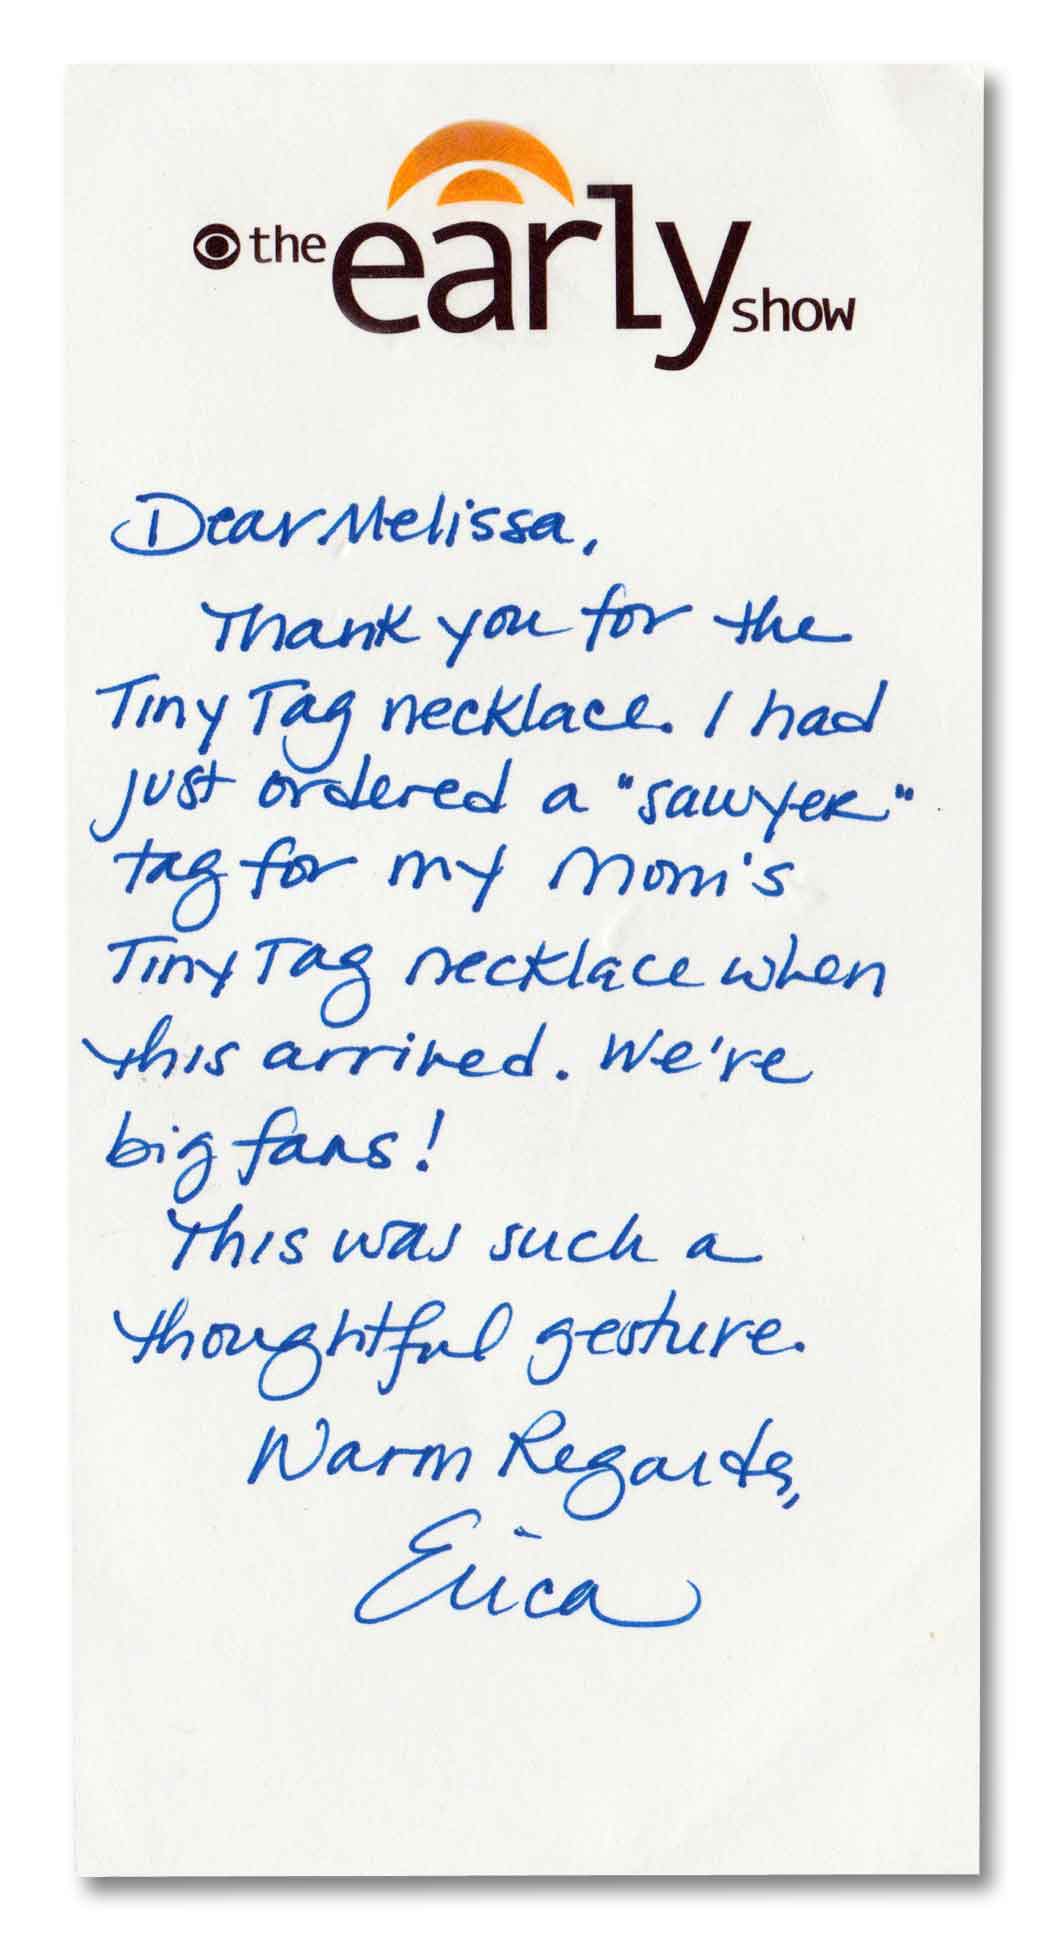 the early show
Dear Melissa,
Thank you for the
Tiny Tag necklace. I had
just ordered a "sawyer"
tag for my Mom's
Tiny Tag necklace when
this arrived. We're
big fans!
This was such a
thoughtful gesture.
Warm Regards,
Erica